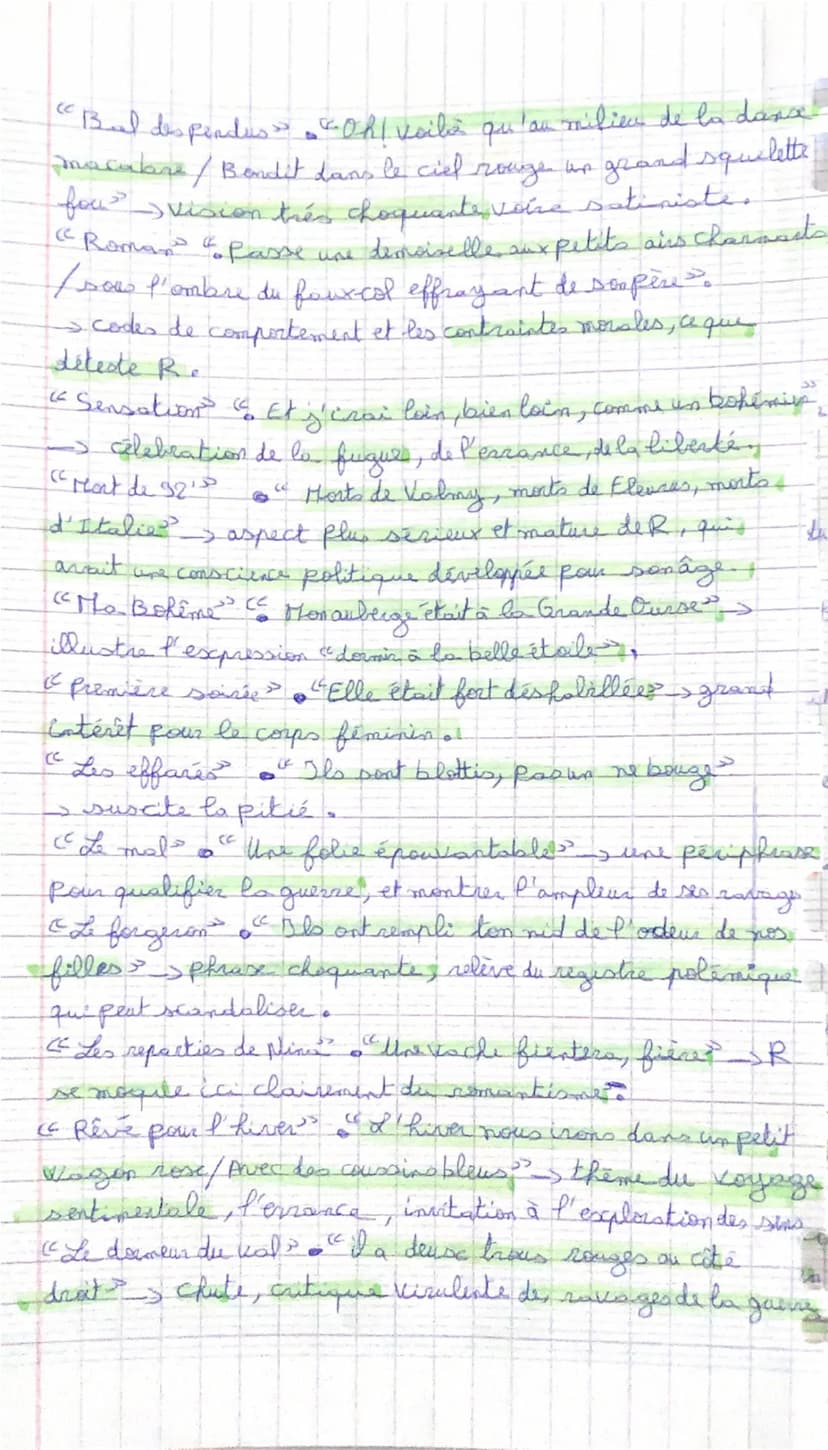 "Bal des pendus" • "Oh! voilà qu'au milieu de la danse
macabre / Bondit dans le ciel rouge un grand squelette
fou" → vision très choquante, voire sataniste.
"Roman" • "Passe une demoiselle aux petits airs charmants
/ sous l'ombre du faux-col effrayant de son père".
→ codes de comportement et les contraintes morales, ce que
déteste R.
"Sensation" • "Et j'irai loin, bien loin, comme un bohémien"
→ célebration de la fugue, de l'errance, de la liberté.
"Mort de 92" • "Morts de Valmy, morts de Fleurus, morts
d'Italie" → aspect plus sérieux et mature de R, qui
avait une conscience politique développée pour son âge.
"Ma Bohême" • "Mon auberge était à la Grande Ourse" →
illustre l'expression "dormir à la belle étoile",
"première soirée" • "Elle était fort déshabillée" → grand
intérêt pour le corps féminin.
"Les effarés" • "Ils sont blottis, pas un ne bouge"
→ suscite la pitié.
"Le mal" • "Une folie épouvantable" → une périphrase
pour qualifier la guerre, et montrer l'ampleur de ses ravages
"Le forgeron" • "Ils ont rempli ton nid de l'odeur de nos
filles" → phrase choquante, relève du registre polémique
qui peut scandaliser.
"Les reparties de Nina" • "Une vache fientera, fière" → R
se moque ici clairement du romantisme.
"Rêvé pour l'hiver" • "L'hiver nous irons dans un petit
wagon rose / Avec des coussins bleus," → thème du voyage
sentimentale, l'errance, invitation à l'exploration des sens
"Le dormeur du val" • "il a deux trous rouges au côté
droit" → chute, critique virulente des ravages de la guerre